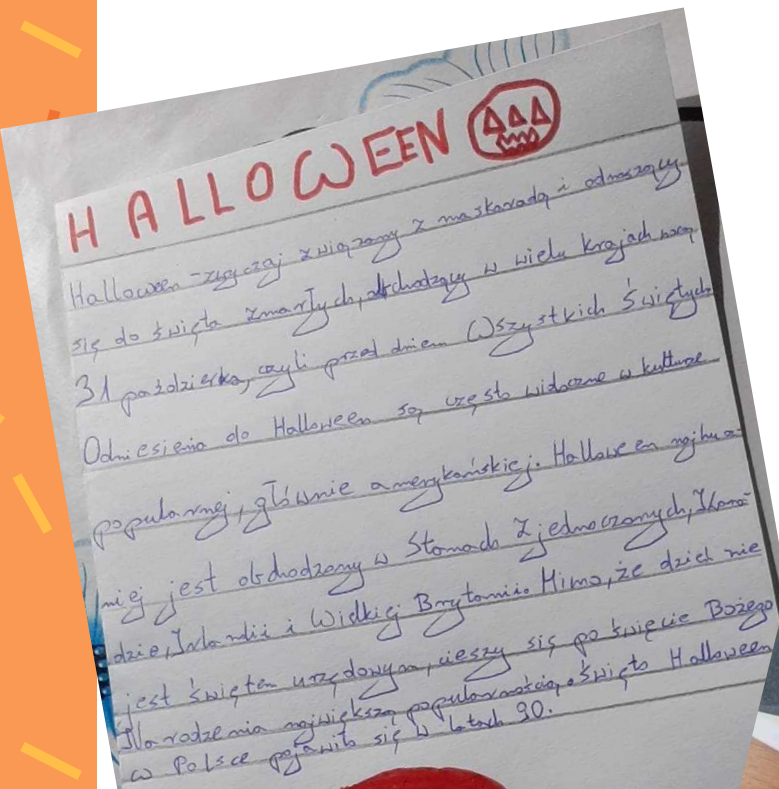 HALLOWEEN
Halloween - zwyczaj związany z maskaradą i odnoszący
się do święta zmarłych, obchodzący w wielu krajach nocą
31 października, czyli przed dniem Wszystkich Świętych
Odniesienia do Halloween są często widoczne w kulturze
popularnej, głównie amerykańskiej. Halloween najhu
niej jest obchodzony w Stanach Zjednoczonych, Kana-
dzie, Irlandii i Wielkiej Brytanii. Mimo, że dzień nie
jest świętem urzędowym, cieszy się po święcie Bożego
Narodzenia największą popularnością. Święto Halloween
w Polsce pojawiło się w latach 90.